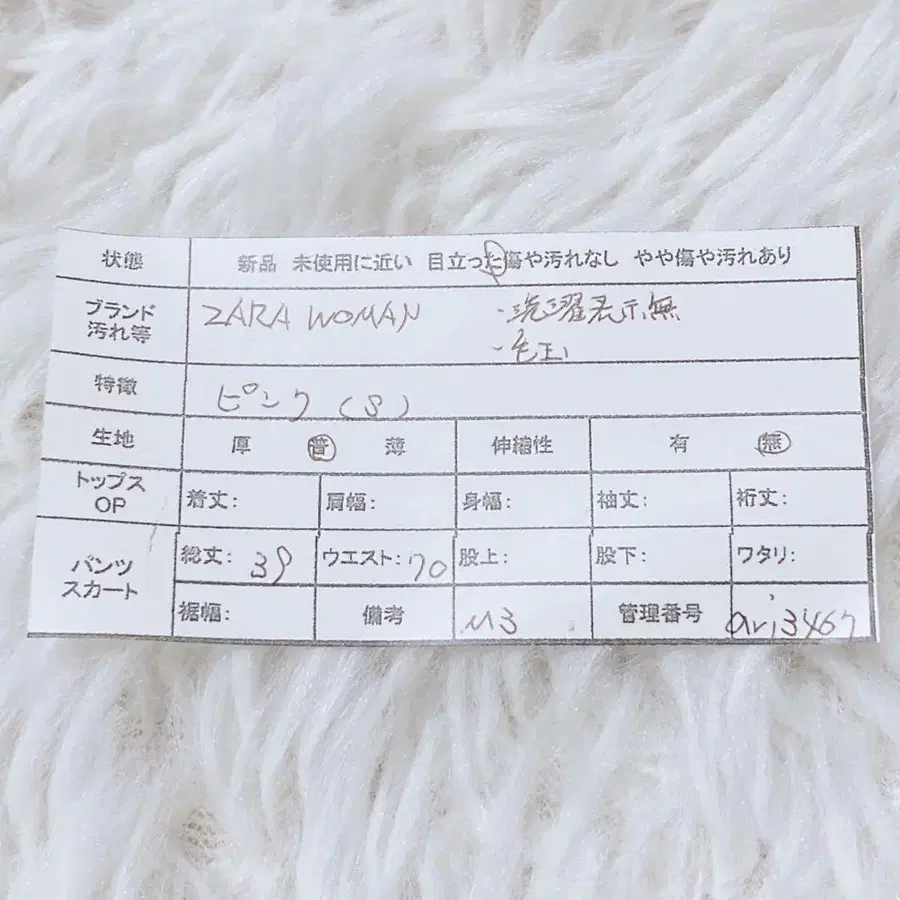 状態 新品 未使用に近い 目立った傷や汚れなし やや傷や汚れあり
ブランド ZARA WOMAN ・洗濯表示無
汚れ等 ・毛玉
特徴 ピンク (S)
生地 厚 普 薄 伸縮性 有 無
トップス
OP 着丈: 肩幅: 身幅: 袖丈: 裄丈:
パンツ
スカート 総丈: 39 ウエスト: 70 股上: 股下: ワタリ:
裾幅: 備考 M3 管理番号 ari3467